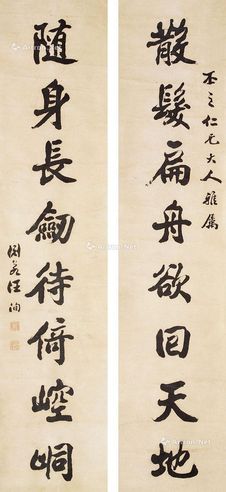 丕之仁兄大人雅属
散髮扁舟欲回天地
随身長劒待倚崆峒
汪洵